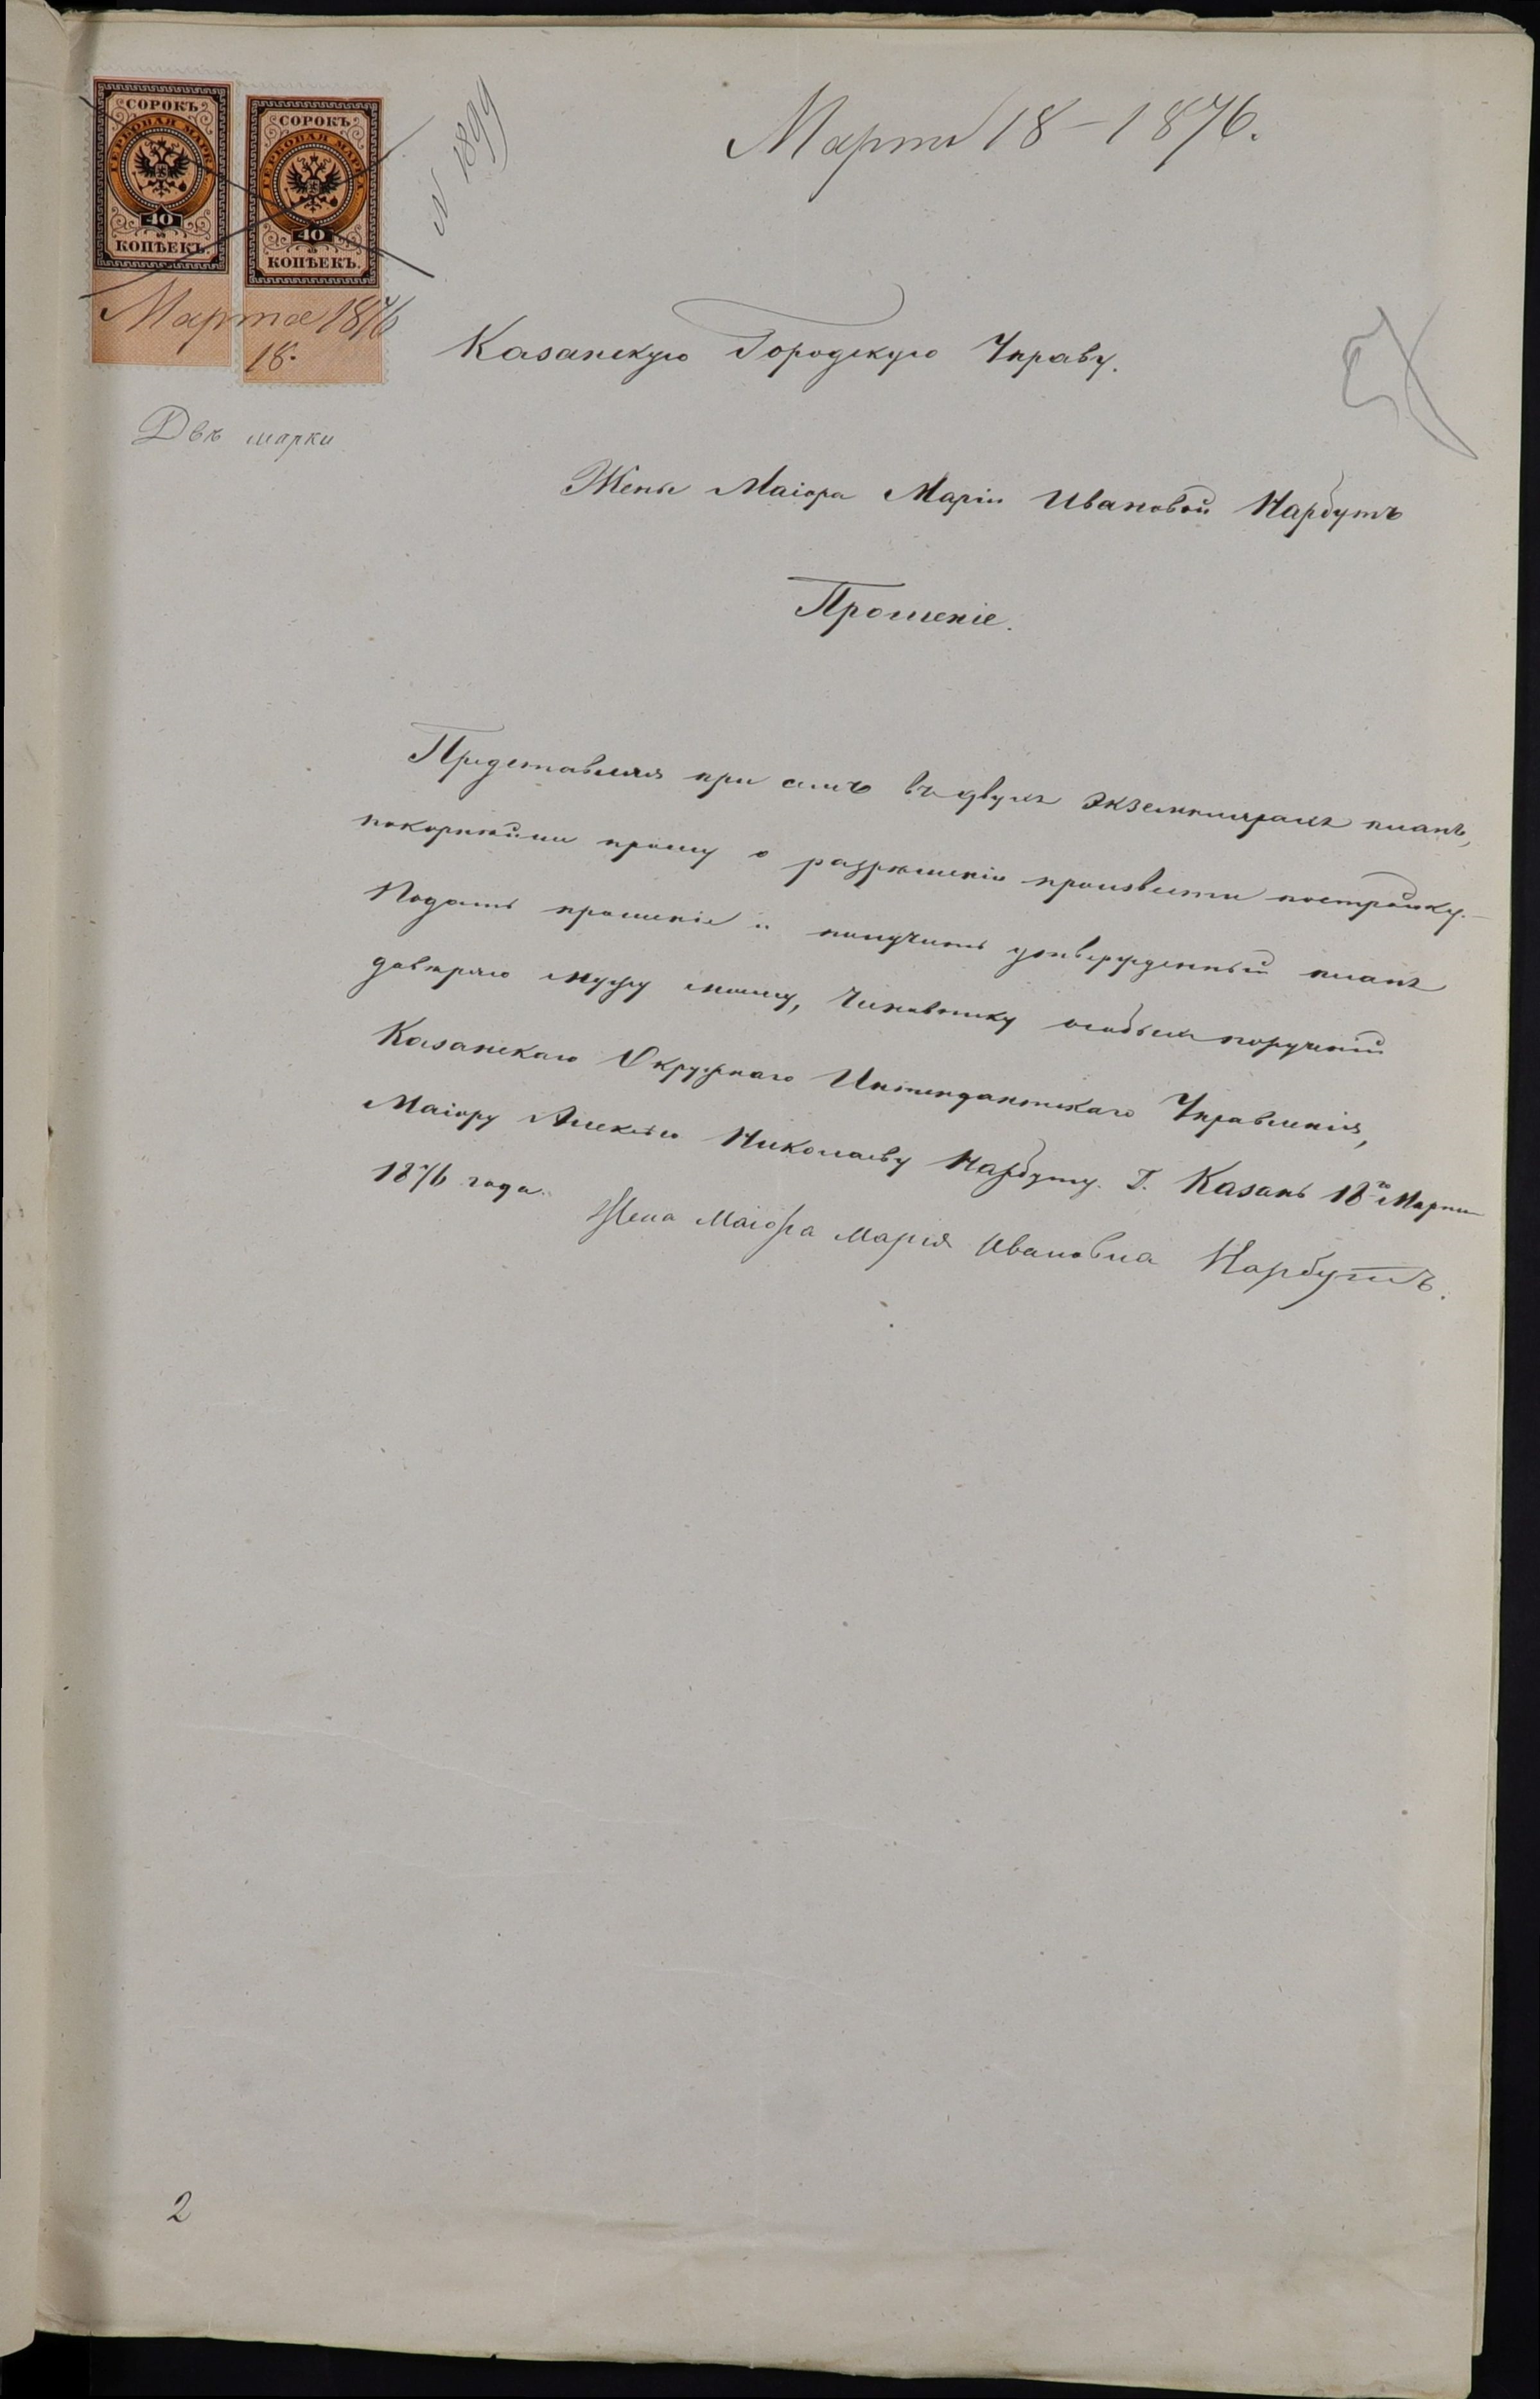 СОРОКЪ
ГЕРБОВАЯ МАРКА
40
КОПѢЕКЪ.
СОРОКЪ
ГЕРБОВАЯ МАРКА.
40
КОПѢЕКЪ.
Марта 1876
18.
Двѣ марки
N 1899
Марта 18 – 1876.
Казанскую Городскую Управу.
Жены Маіора Маріи Ивановой Нарбутъ
Прошеніе.
Представляя при семъ въ двухъ экземплярахъ планъ,
покорнѣйше прошу о разрѣшеніи произвести постройку. –
Подать прошеніе и получить утвержденный планъ
довѣряю мужу моему, Чиновнику особыхъ порученій
Казанскаго Окружнаго Интендантскаго Управленія,
Маіору Алексѣю Николаеву Нарбуту. Г. Казань 18го Марта
1876 года.
Жена Маіора Марія Ивановна Нарбутъ.
2